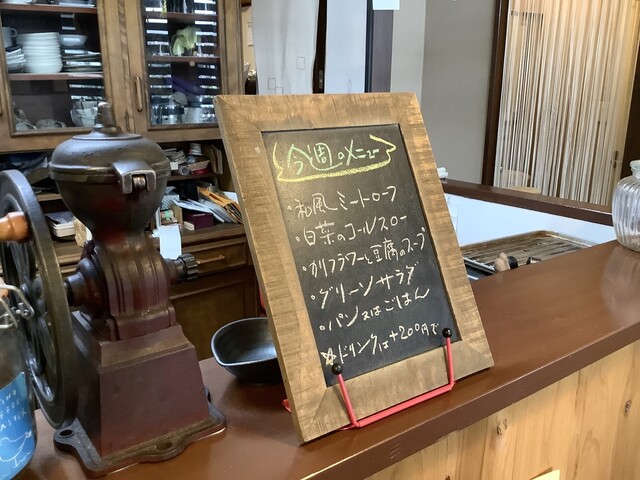 今週のメニュー
・和風ミートローフ
・白菜のコールスロー
・カリフラワーと豆腐のスープ
・グリーンサラダ
・パン又はごはん
☆ドリンクは+200円で